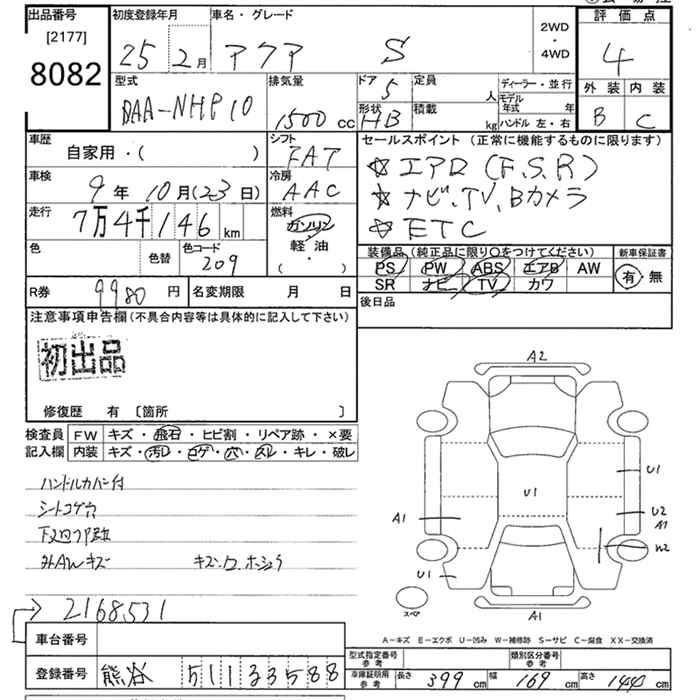 出品番号 初度登録年月 車名・グレード 評価点
[2177]
8082
25年 2月 アクア S 2WD・4WD 4
型式 排気量 ドア 定員 ディーラー・並行 外装 内装
DAA-NHP10 1500cc 5 人 モデル年式 年 B C
形状 積載 ハンドル 左・右
HB kg
車歴 シフト セールスポイント (正常に機能するものに限ります)
自家用・( ) FAT ☆エアロ(F.S.R)
車検 冷房 ☆ナビ.TV.Bカメラ
9年10月(23日) AAC ☆ETC
走行 燃料
7万4千146km ガソリン
軽油
( )
色 色替 色コード
209
装備品(純正品に限り○をつけてください) 新車保証書
PS PW ABS エアB AW 有・無
SR ナビ TV カワ
R券 9980円 名変期限 月 日 後日品
注意事項申告欄(不具合内容等は具体的に記入して下さい)
初出品
修復歴 有 〔箇所 〕
検査員 FW キズ・飛石・ヒビ割・リペア跡・×要
記入欄 内装 キズ・汚レ・コゲ・穴・スレ・キレ・破レ
ハンドルカバー付
シートコゲ穴
外AWキズ
2168531
車台番号
登録番号 熊谷 511 3588
A2
U1
U1
U2
A1
A1
W2
U1
スペア
A1
A-キズ E-エクボ U-凹み W-補修跡 S-サビ C-腐食 XX-交換済
型式指定番号 参考 類別区分番号 参考
車庫証明用 参考 長さ 399cm 幅 169cm 高さ 144cm